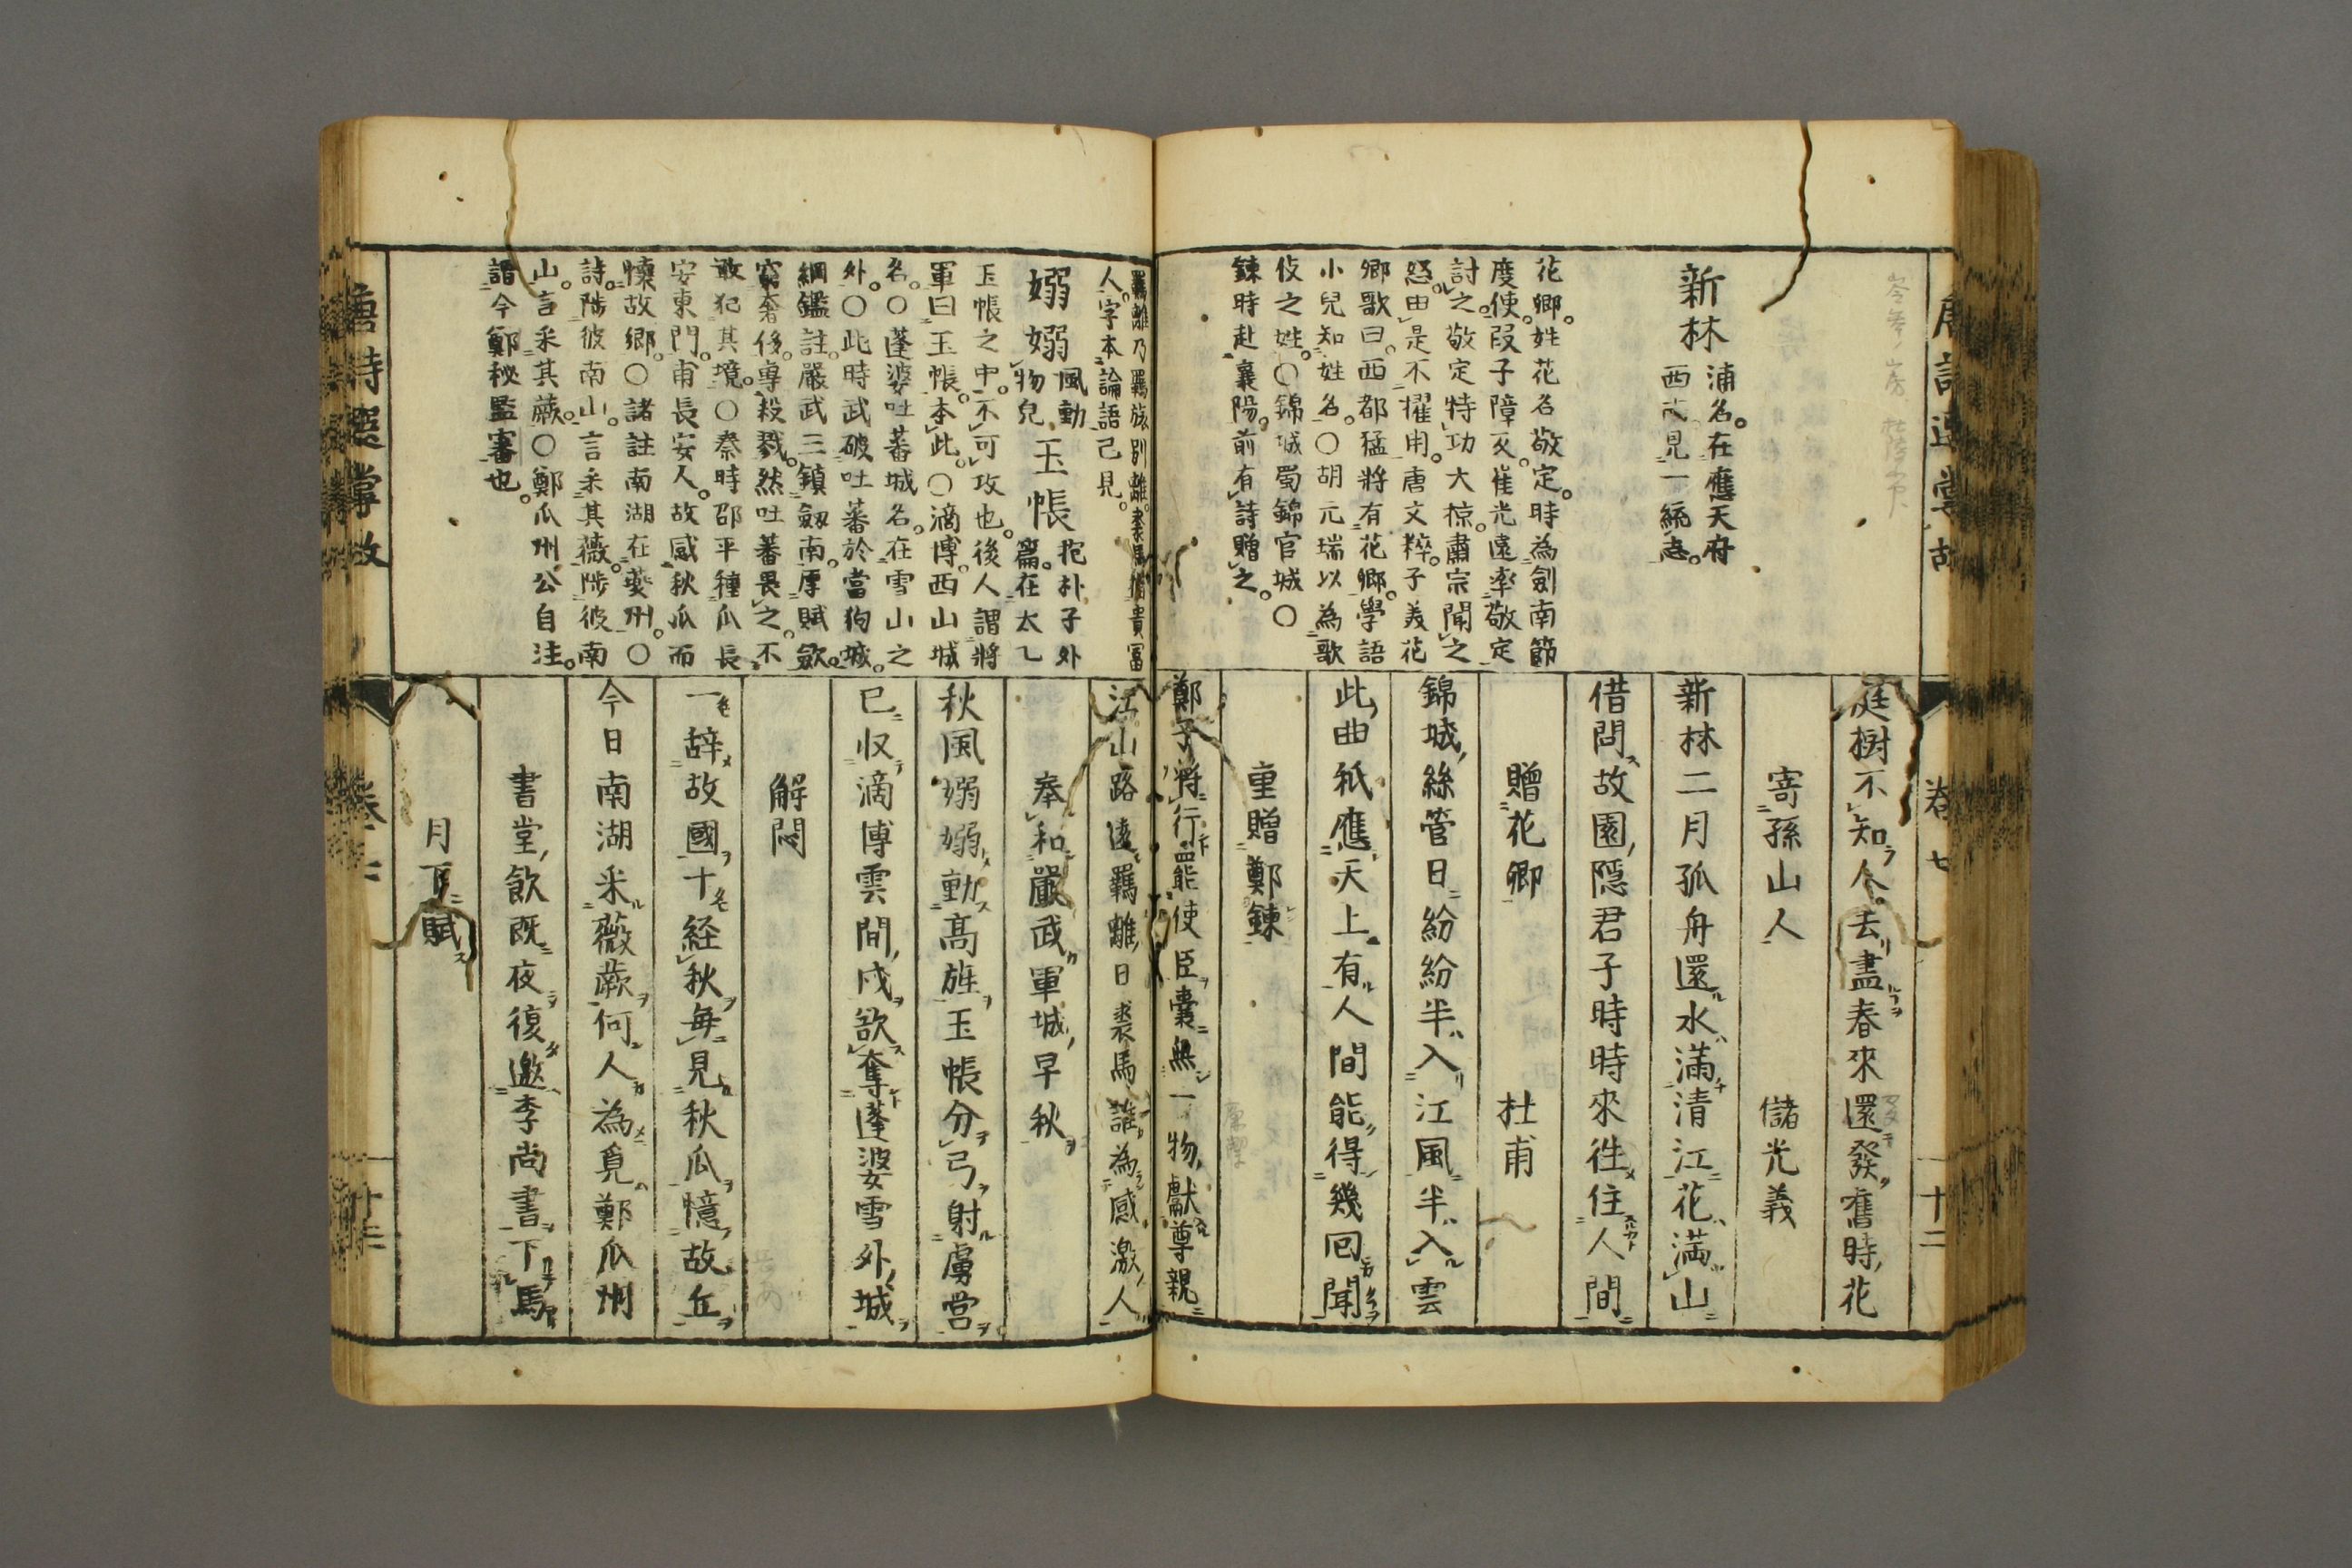 新林 浦名。在應天府
西六見一統志。
花卿。姓花名敬定。時為劍南節
度使。段子障反。崔光遠率敬定
討之。敬定恃功大掠。肅宗聞之
怒。由是不擢用。唐文粹。子美花
卿歌曰。西都猛將有花卿。學語
小兒知姓名。○胡元瑞以為歌
伎之姓。○錦城蜀錦官城○
鍊時赴襄陽。前有詩贈之。
庭樹不知人去盡春來還發舊時花
寄孫山人 儲光義
新林二月孤舟還水滿清江花満山
借問故園隠君子時時來徃住人間
贈花卿 杜甫
錦城絲管日紛紛半入江風半入雲
此曲秖應天上有人間能得幾回聞
重贈鄭鍊
鄭子將行罷使臣囊無一物獻尊親
卷七
十二
羈離乃羈旅別離。裘馬猶貴冨
人。字本論語已見。
嫋嫋 風動物皃 玉帳 抱朴子外篇。在太乙
玉帳之中。不可攻也。後人謂將
軍曰玉帳。本此。○滴博。西山城
名。○蓬婆吐蕃城名。在雪山之
外。○此時武破吐蕃於當狗城。
綱鑑註。嚴武三鎮劔南。厚賦歛。
窮奢侈。專殺戮。然吐蕃畏之。不
敢犯其境。○秦時邵平種瓜長
安東門。甫長安人。故感秋瓜而
懐故鄉。○諸註南湖在夔州。○
詩。陟彼南山。言采其薇。陟彼南
山。言采其蕨。○鄭瓜州。公自注。
謂今鄭秘監審也。
江山路遠羈離日裘馬誰為感激人
奉和嚴武軍城早秋
秋風嫋嫋動高旌玉帳分弓射虜営
已収滴博雲間戍欲奪蓬婆雪外城
解悶
一辞故國十経秋毎見秋瓜憶故丘
今日南湖采薇蕨何人為覓鄭瓜州
書堂飲既夜復邀李尚書下馬
月下賦
唐詩選掌故